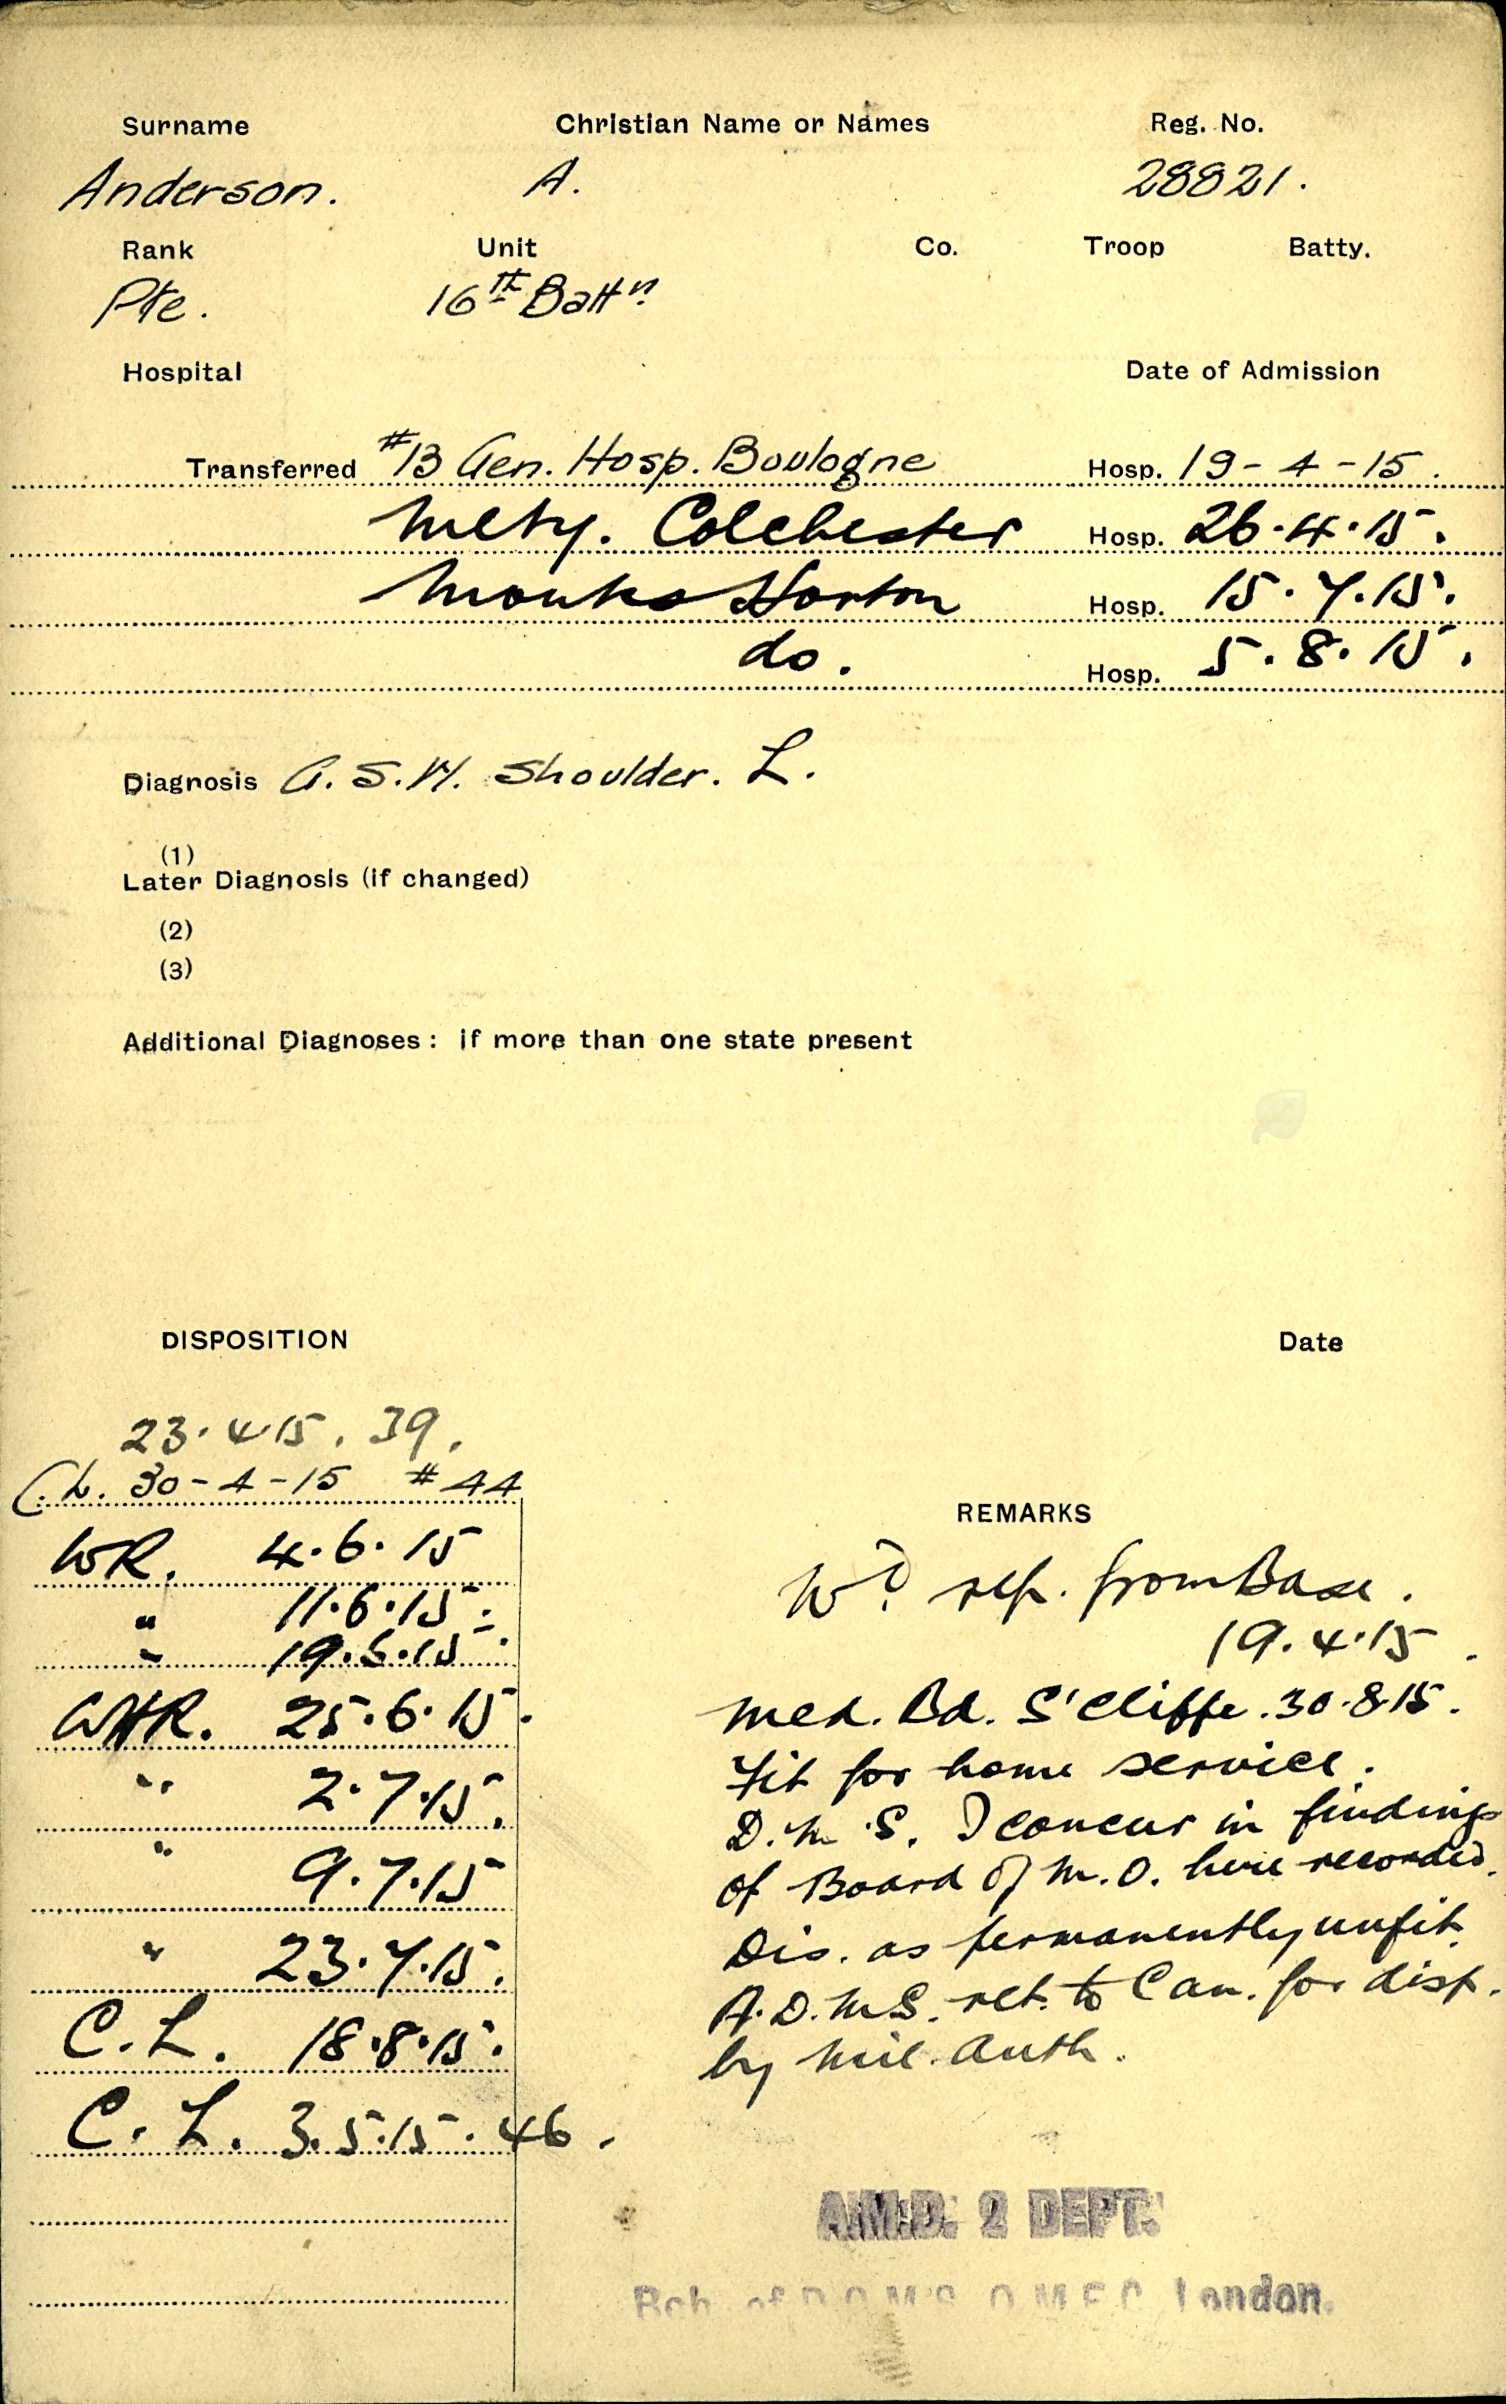 Surname Christian Name or Names Reg. No.
Anderson. A. 28821.
Rank Unit Co. Troop Batty.
Pte. 16th Battn
Hospital Date of Admission
Transferred #13 Gen. Hosp. Boulogne Hosp. 19-4-15.
Mlty. Colchester Hosp. 26.4.15.
Monks Horton Hosp. 15.7.15.
do. Hosp. 5.8.15.
Diagnosis G.S.W. Shoulder. L.
(1)
Later Diagnosis (if changed)
(2)
(3)
Additional Diagnoses: if more than one state present
DISPOSITION Date
23.4.15. 39.
C.L. 30-4-15 #44
REMARKS
WR. 4.6.15
" 11.6.15.
" 19.6.15.
WHR. 25.6.15.
" 2.7.15.
" 9.7.15
" 23.7.15.
C.L. 18.8.15.
C.L. 3.5.15. 46.
Wd rep. from Base.
19.4.15.
Med. Bd. S'Cliffe. 30.8.15.
Fit for home service.
D.M.S. I concur in findings
of Board of M.O. here recorded.
Dis. as permanently unfit.
A.D.M.S. ret. to Can. for disp.
by Mil. Auth.
A.M.D. 2 DEPT.
Bch. of D.G.M.S. O.M.F.C. London.